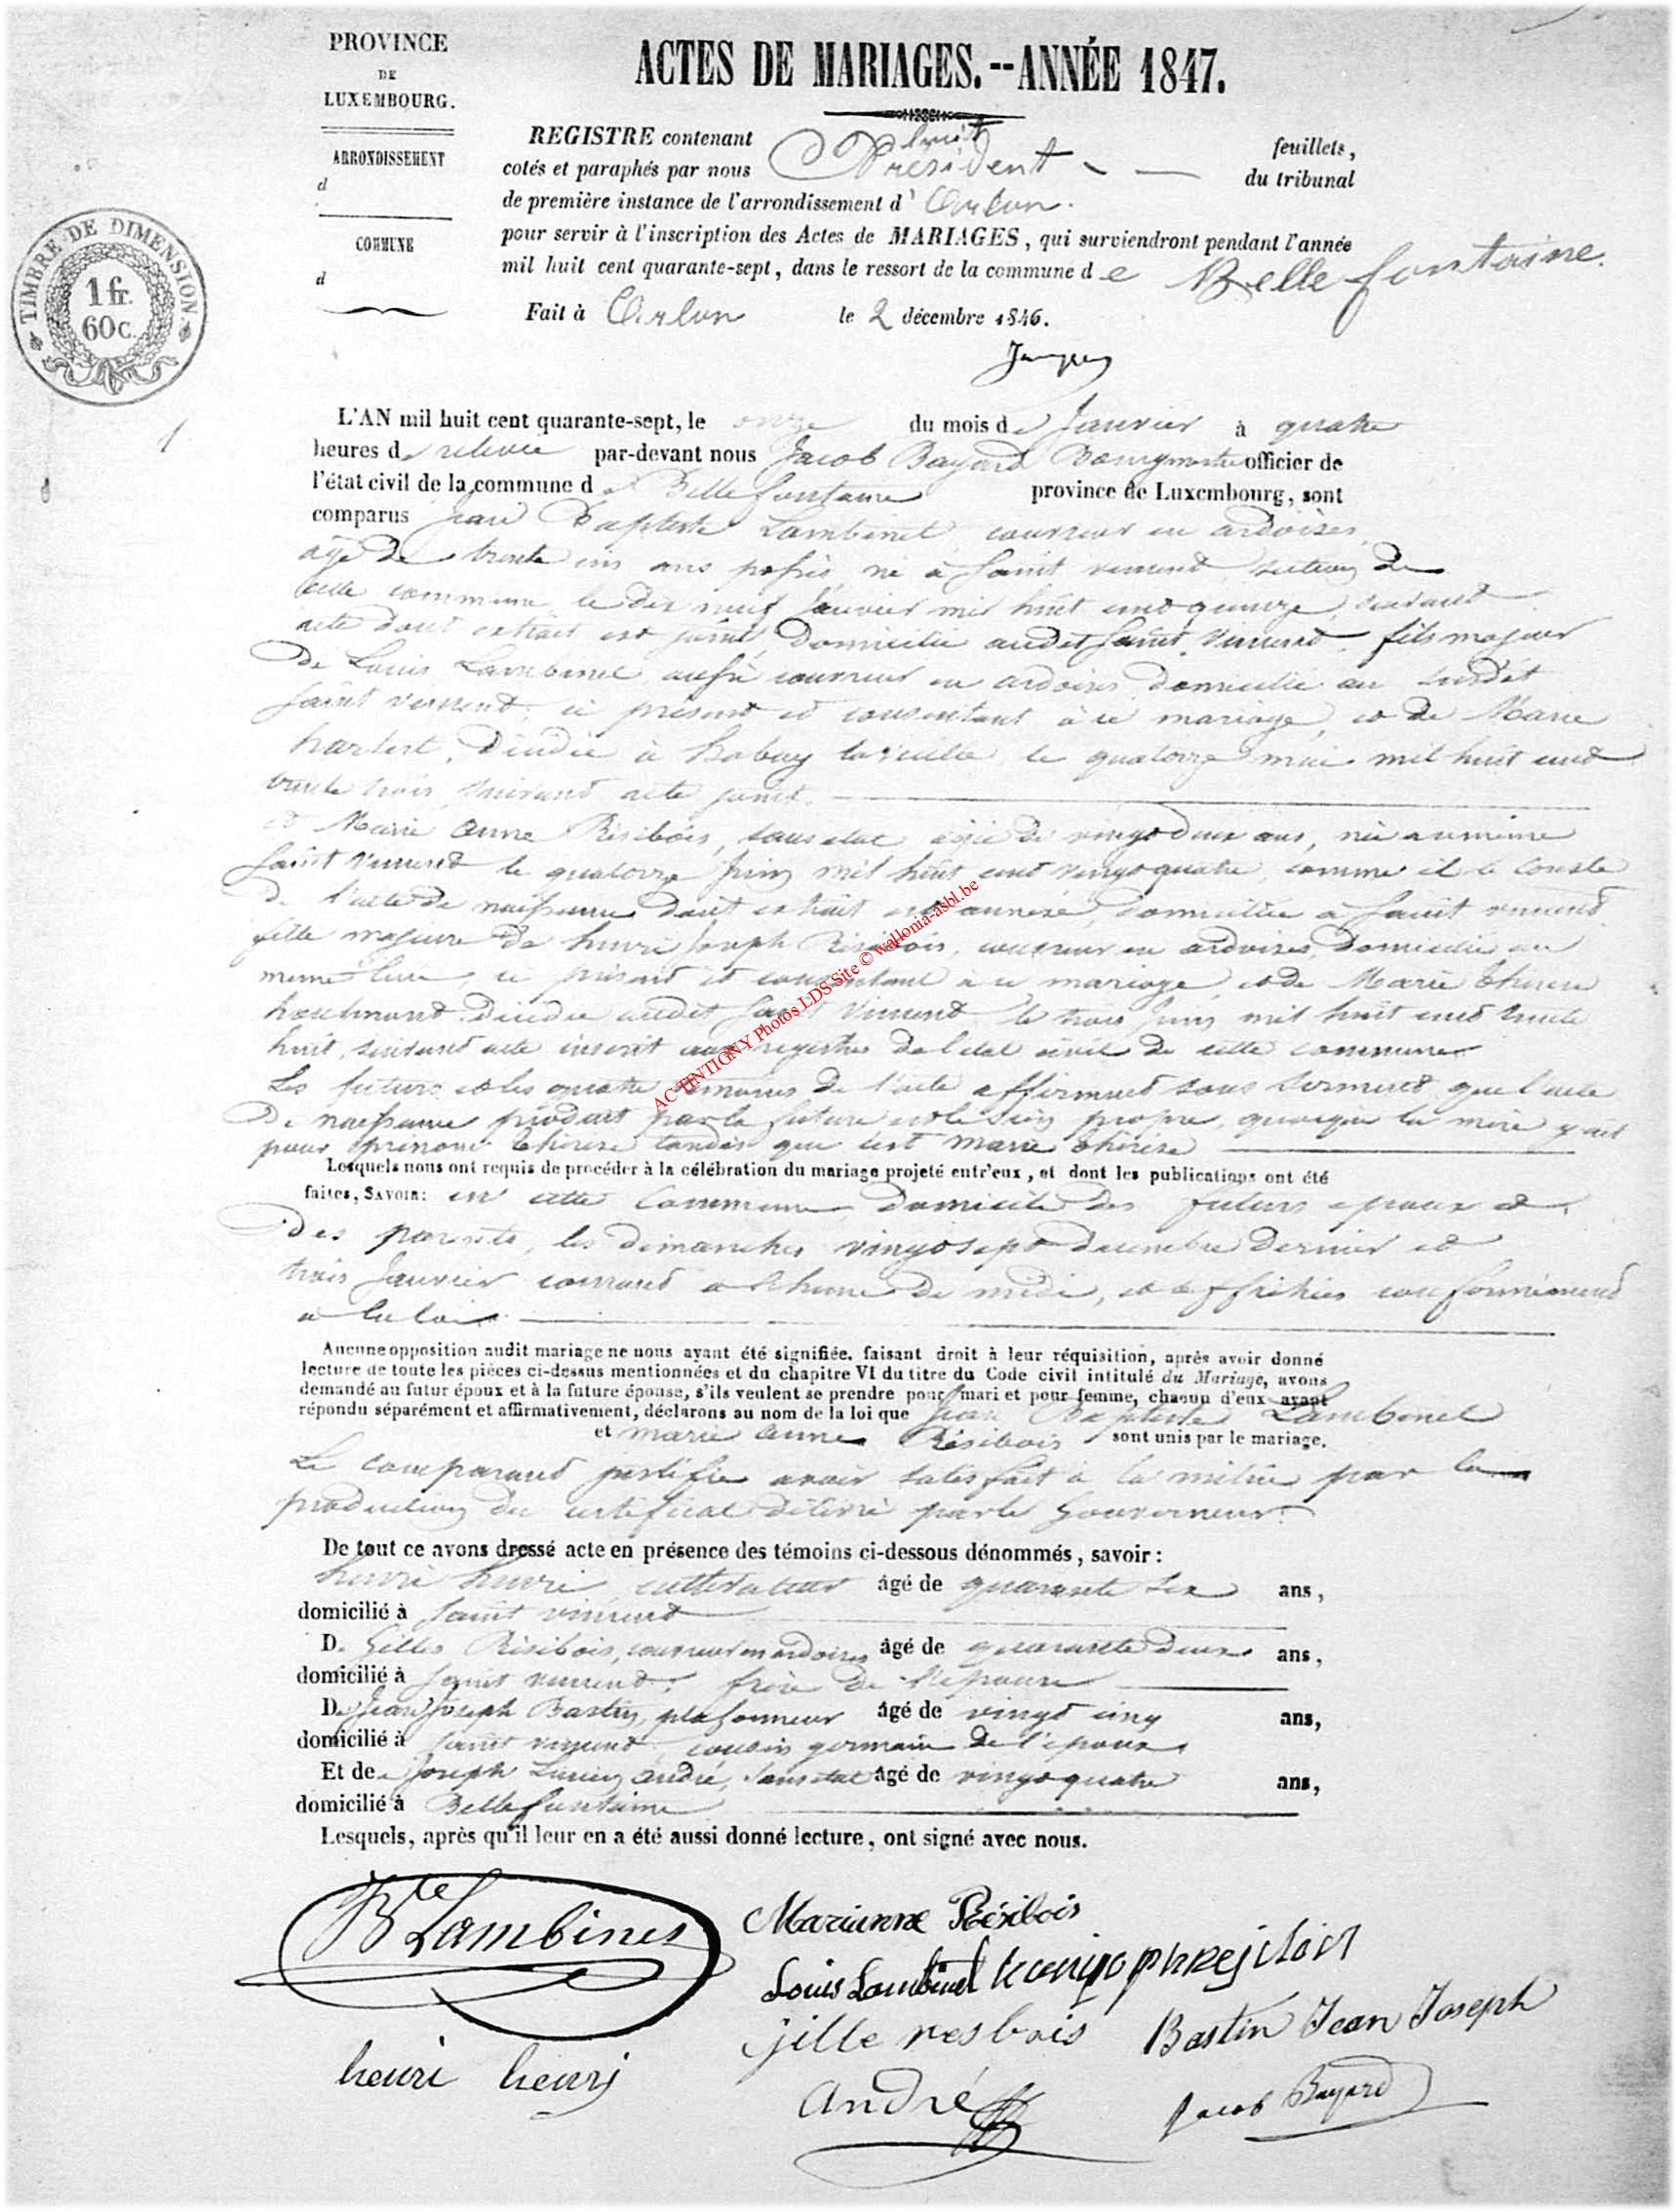 PROVINCE
DE
LUXEMBOURG.
ARRONDISSEMENT
d
COMMUNE
d
TIMBRE DE DIMENSION
1 fr.
60 c.
1
ACTES DE MARIAGES.--ANNÉE 1847.
REGISTRE contenant huit feuillets,
cotés et paraphés par nous Président du tribunal
de première instance de l'arrondissement d' Arlon.
pour servir à l'inscription des Actes de MARIAGES, qui surviendront pendant l'année
mil huit cent quarante-sept, dans le ressort de la commune de Bellefontaine.
Fait à Arlon le 2 décembre 1846.
L'AN mil huit cent quarante-sept, le onze du mois de Janvier à quatre
heures de relevée par-devant nous Jacob Bayard Bourgmestre officier de
l'état civil de la commune de Bellefontaine province de Luxembourg, sont
comparus Jean Baptiste Lambinet couvreur en ardoises,
âgé de trente un ans passés, né à Saint vincent, section de
cette commune le dix neuf Janvier mil huit cent quinze, suivant
acte dont extrait est joint, Domicilié audit Saint Vincent, fils majeur
De Louis Lambinet aussi couvreur en ardoises domicilié au susdit
Saint vincent, ci présent et consentant à ce mariage, et de Marie
décédée à habay la vieille le quatorze mai mil huit cent
trente trois, suivant acte joint.
et Marie Anne Résibois, sans etat agée de vingt deux ans, née au même
Saint Vincent le quatorze Juin mil huit cent vingt quatre, comme il le conste
De l'acte de naissance dont extrait est annexé, domiciliée à Saint vincent
fille majeure de henri Joseph Résibois, couvreur en ardoises, Domicilié au
meme lieu, ci présent et consentant à ce mariage, et de Marie thérèse
décédée audit Saint Vincent le trois Juin mil huit cent trente
huit, suivant acte inscrit aux registres de l'etat civil de cette commune
Les futurs et les quatre témoins de l'acte affirment sous serment que l'acte
De naissance produit par la future est le sien propre, quoique la mère y ait
pour prénom thérèse tandis que c'est marie thérèse
Lesquels nous ont requis de procéder à la célébration du mariage projeté entr'eux, et dont les publications ont été
faites, SAVOIR: en cette Commune domicile des futurs epoux et
Des parents, les dimanches vingt sept decembre dernier et
trois Janvier courant a l'heure de midi, et affichées conformément
a la loi.
Aucune opposition audit mariage ne nous ayant été signifiée, faisant droit à leur réquisition, après avoir donné
lecture de toute les pièces ci-dessus mentionnées et du chapitre VI du titre du Code civil intitulé du Mariage, avons
demandé au futur époux et à la future épouse, s'ils veulent se prendre pour mari et pour femme, chacun d'eux ayant
répondu séparément et affirmativement, déclarons au nom de la loi que Jean Baptiste Lambinet
et marie anne Résibois sont unis par le mariage.
Le comparant justifie avoir satisfait à la milice par la
production du certificat délivré par le Gouverneur.
De tout ce avons dressé acte en présence des témoins ci-dessous dénommés, savoir:
henri henri cultivateur âgé de quarante six ans,
domicilié à Saint vincent
De Gilles Résibois, couvreur en ardoises âgé de quarante deux ans,
domicilié à Saint vincent, frère de l'épouse
De Jean Joseph Bastin, plafonneur âgé de vingt cinq ans,
domicilié à Saint vincent, cousin germain de l'epoux
Et de Joseph Lucien André, sans etat âgé de vingt quatre ans,
domicilié à Bellefontaine
Lesquels, après qu'il leur en a été aussi donné lecture, ont signé avec nous.
JBte Lambinet
Marianne Résibois
Louis Lambinet
gille resbois
Bastin Jean Joseph
henri henri
André
Jacob Bayard
AC TINTIGNY Photos LDS Site © wallonia-asbl.be